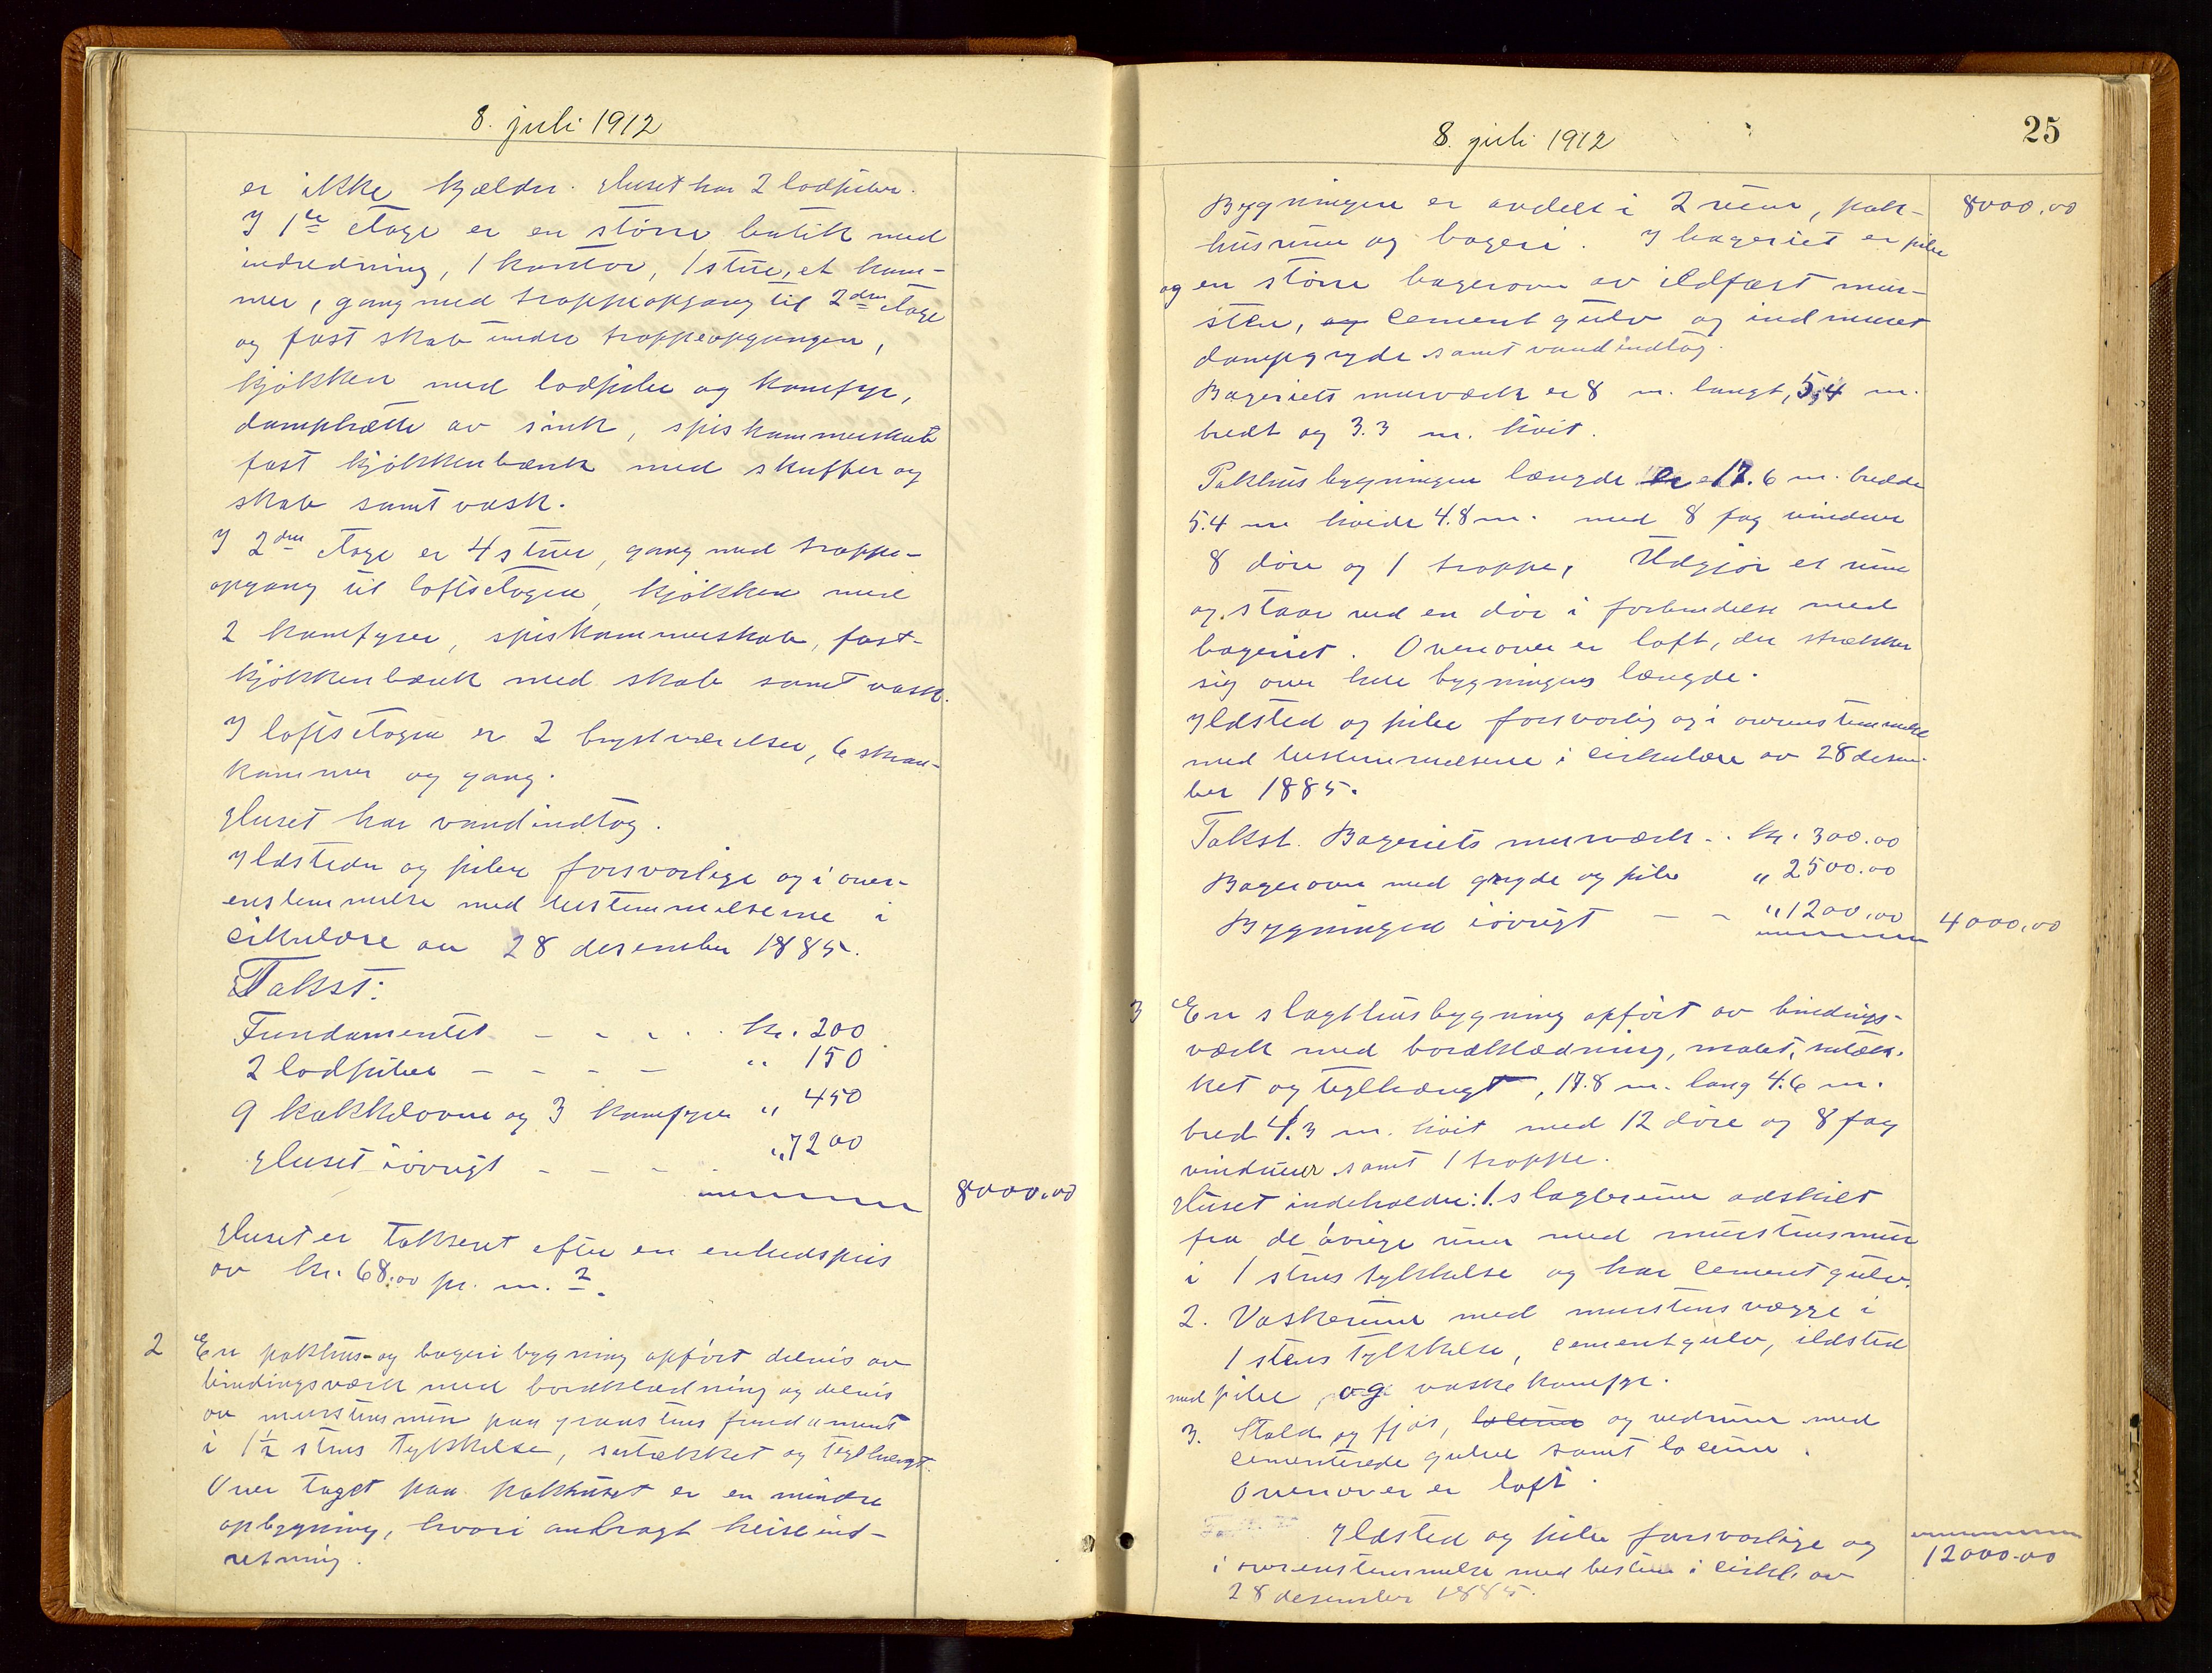 8. juli 1912
er ikke kjælder. Huset har 2 lodpiber.
I 1ste etage er en større butik med
indredning, 1 kontor, 1 stue, et kam-
mer, gang med troppeopgang til 2den etage
og fast skab under troppeopgangen,
kjøkken med lodpibe og komfyr,
damphætte av sink, spiskammerskab
fast kjøkkenbænk med skuffer og
skab samt vask.
I 2den etage er 4 stuer, gang med troppe-
opgang til loftsetagen, kjøkken med
2 komfyrer, spiskammerskab, fast-
kjøkkenbænk med skab samt vask.
I loftsetagen er 2 brystværelser, 6 skraa-
kammer og gang.
Huset har vandindtag.
Ildsteder og piber forsvarlige og i over-
enstemmelse med bestemmelserne i
cirkulære av 28 desember 1885.
Takst:
Fundamentet - - - - kr. 200
2 lodpiber - - - - " 150
9 kakkelovne og 3 komfyrer " 450
Huset iøvrigt - - - - " 7200
8000.00
Huset er takseret efter en enhedspris
av kr. 68.00 pr. m.2.
2 En pakhus- og bageri bygning opført delvis av
bindingsværk med bordklædning og delvis
av murstensmur paa graastens fundament
i 1½ stens tykkelse, sutækket og teglhængt.
Over taget paa pakhuset er en mindre
opbygning, hvori anbragt heiseind-
retning.
25
8. juli 1912
Bygningen er avdelt i 2 rum, pak- 8000.00
husrum og bageri. I bageriet er pibe
og en større bagerovn av ildfast mur-
sten, og cement gulv og indmuret
dampgryde samt vandindtag.
Bageriets murværk er 8 m. langt, 5,4 m.
bredt og 3.3 m. høit.
Pakhusbygningen længde er 17.6 m. bredde
5.4 m høide 4.8 m. med 8 fag vinduer
8 døre og 1 troppe, Utgjør et rum
og staar ved en dør i forbindelse med
bageriet. Ovenover er loft, der strækker
sig over hele bygningens længde.
Ildsted og pibe forsvarlig og i overenstemmelse
med bestemmelserne i cirkulære av 28 desem-
ber 1885.
Takst. Bageriets murværk - kr. 300.00
Bagerovn med gryde og pibe " 2500.00
Bygningen iøvrigt - - " 1200.00 4000.00
3 En slagthusbygning opført av bindings-
værk med bordklædning, malet, sutæk-
ket og teglhængt, 17.8 m. lang 4.6 m.
bred 4.3 m. høit med 12 døre og 8 fag
vinduer samt 1 troppe.
Huset indeholder: 1. slagterum adskilt
fra de øvrige rum med murstensmur
i 1 stens tykkelse og har cementgulv.
2. Vaskerum med murstens vægge i
1 stens tykkelse, cementgulv, ildsted
med pibe og vaske komfyr.
3. Stald og fjøs, lokum og vedrum med
cementerede gulve samt locum.
Ovenover er loft.
Ildsted og pibe forsvarlige og
i overenstemmelse med bestem i cirkl. av
28 desember 1885.
12000.00